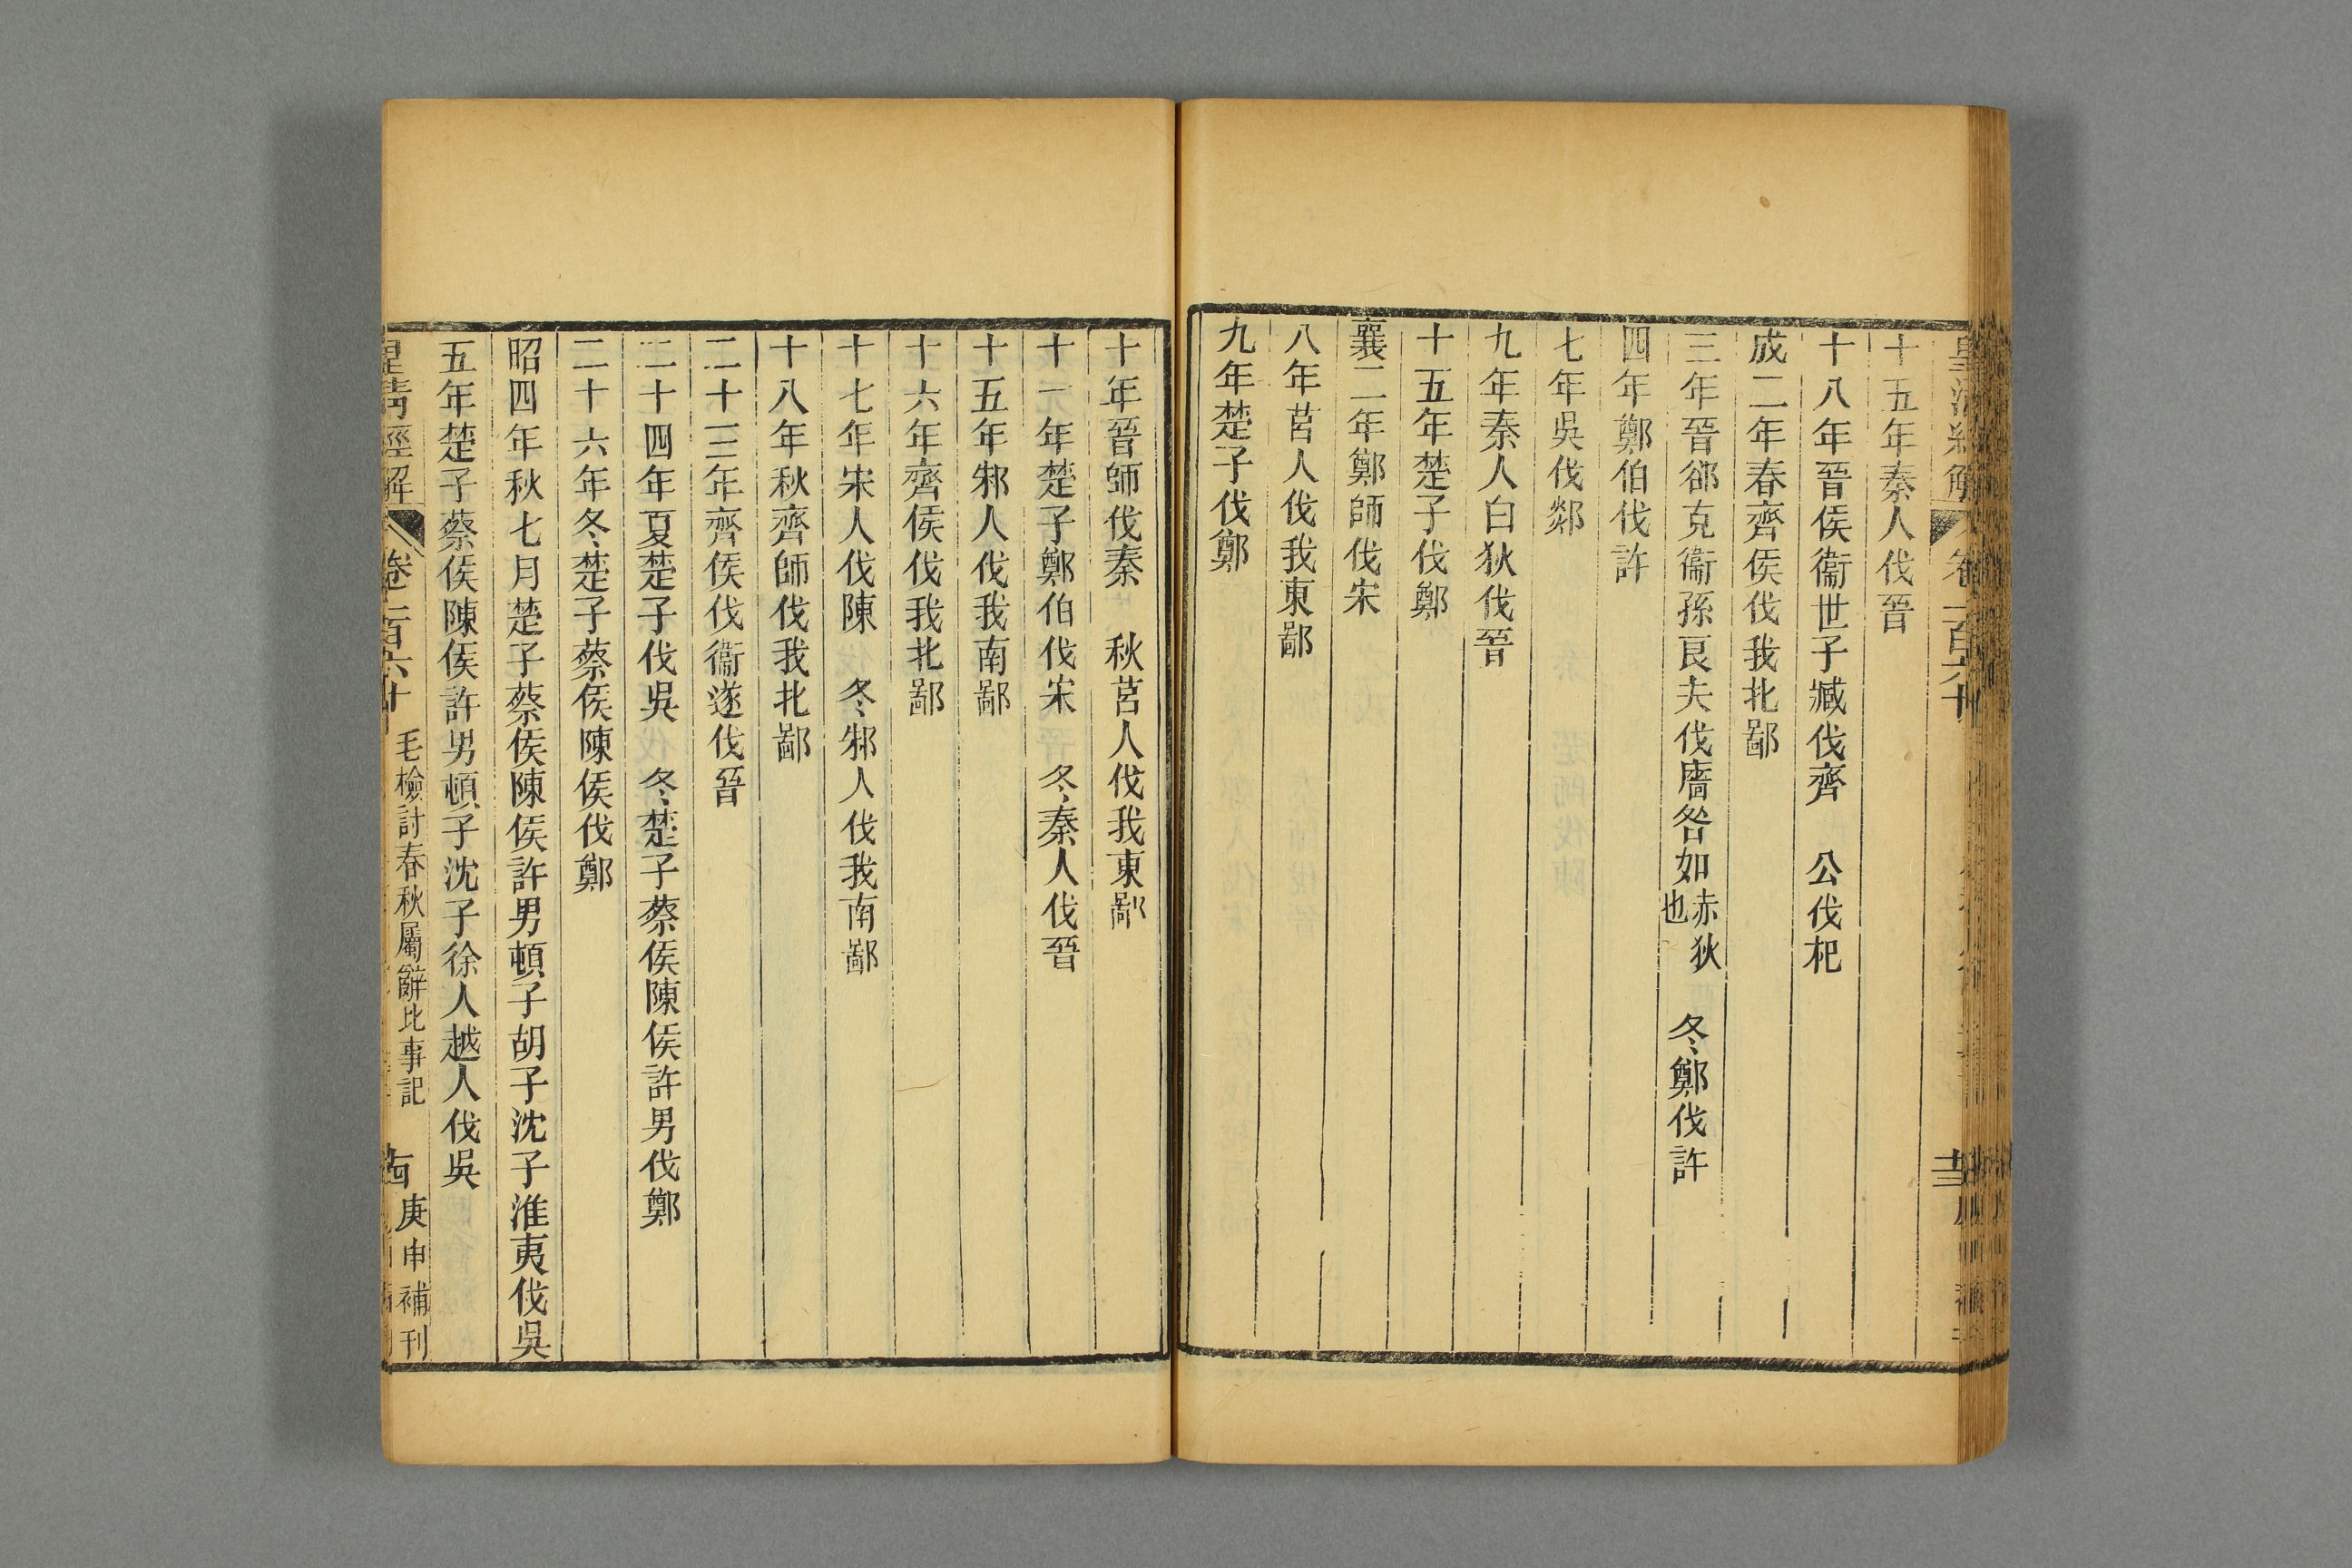 十五年秦人伐晉
十八年晉侯衞世子臧伐齊　公伐杞
成二年春齊侯伐我北鄙
三年晉郤克衞孫良夫伐廧咎如赤狄也　冬鄭伐許
四年鄭伯伐許
七年吳伐郯
九年秦人白狄伐晉
十五年楚子伐鄭
襄二年鄭師伐宋
八年莒人伐我東鄙
九年楚子伐鄭
十年晉師伐秦　秋莒人伐我東鄙
十一年楚子鄭伯伐宋　冬秦人伐晉
十五年邾人伐我南鄙
十六年齊侯伐我北鄙
十七年宋人伐陳　冬邾人伐我南鄙
十八年秋齊師伐我北鄙
二十三年齊侯伐衞遂伐晉
二十四年夏楚子伐吳　冬楚子蔡侯陳侯許男伐鄭
二十六年冬楚子蔡侯陳侯伐鄭
昭四年秋七月楚子蔡侯陳侯許男頓子胡子沈子淮夷伐吳
五年楚子蔡侯陳侯許男頓子沈子徐人越人伐吳
皇清經解　卷一百六十　毛檢討春秋屬辭比事記　庚申補刊